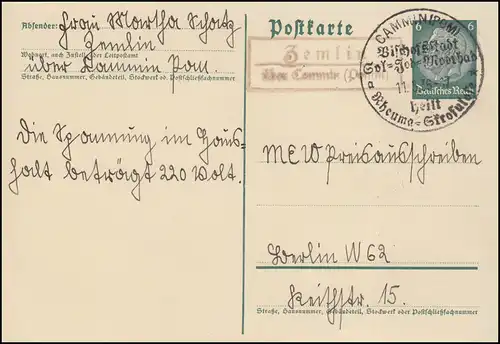 Absender: Frau Martha Schatz
Zemlin
Wohnort, auch Zustell- oder Leitpostamt
über Cammin Pom.
Straße, Hausnummer, Gebäudeteil, Stockwerk od. Postschließfachnummer
Die Spannung im Haus-
halt beträgt 220 Volt.
Postkarte
Zemlin
über Cammin (Pomm)
CAMMIN (POM)
Bischofsstadt
Sol- Moorbad
11.
heilt
Rheuma - Skrofulose
6 6
Deutsches Reich
MEW Preisausschreiben
Berlin W 62
Keithstr. 15.
Straße, Hausnummer, Gebäudeteil, Stockwerk oder Postschließfachnummer